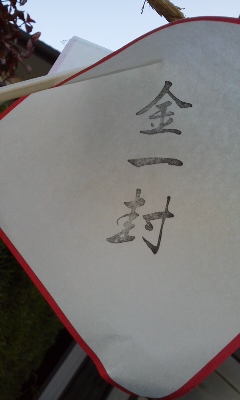 金一封